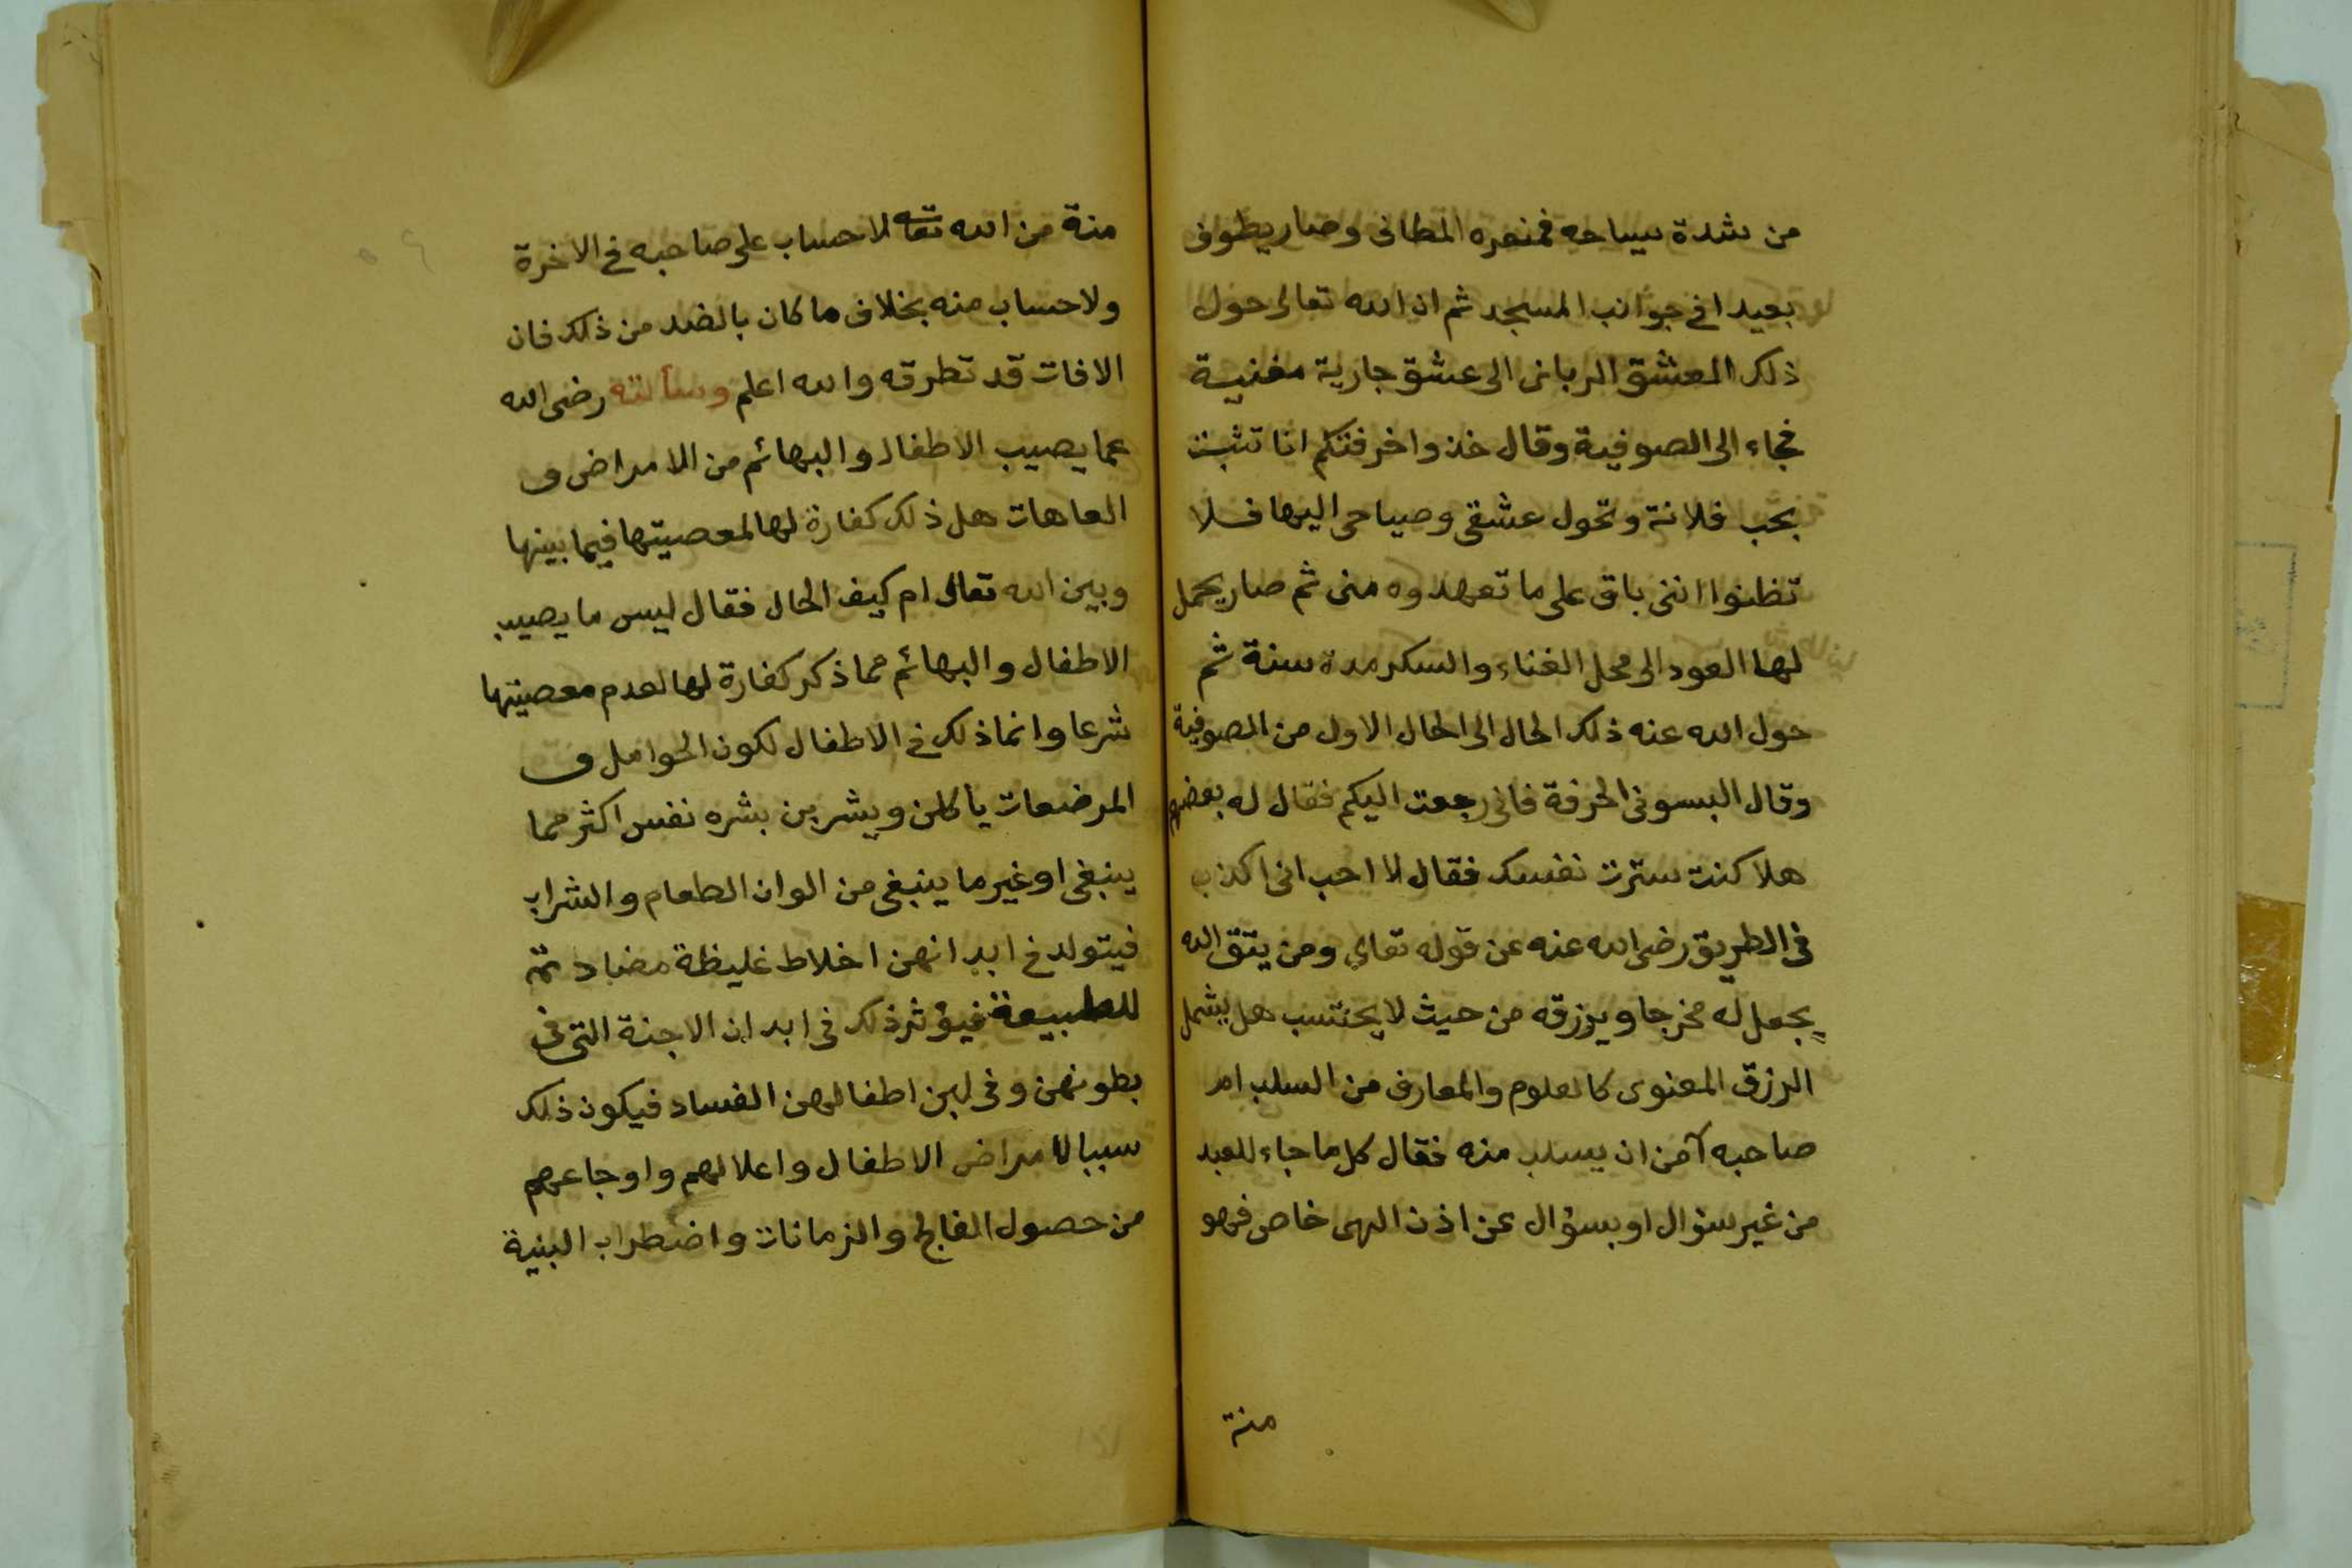 من شدة سياحه فمنعره المطانى وصار يطوف
بعيدا فى جوانب المسجد ثم ان الله تعالى حول
ذلك العشق الربانى الى عشق جارية مغنيية
فجاء الى الصوفية وقال خذوا خرفتكم انا تثبت
بحب فلانة وتحول عشقى وصياحى اليها فلا
تظنوا اننى باق على ما تعهدوه منى ثم صار يحمل
لها العود الى محل الغناء والسكر مدة سنة ثم
حول الله عنه ذلك الحال الى الحال الاول من الصوفية
وقال البسونى الخرفة فانى رجعت اليكم فقال له بعضهم
هلا كنت سترت نفسك فقال لا احب انى اكذب
فى الطريق رضى الله عنه عن قوله تعالى ومن يتق الله
يجعل له مخرجا ويرزقه من حيث لا يحتسب هل يشمل
الرزق المعنوى كالعلوم والمعارف من السلب ام
صاحبه آمن ان يسلب منه فقال كل ما جاء للعبد
من غير سؤال او بسؤال عن اذن الهى خاص فهو
منة
منة من الله تعه لا حساب على صاحبه فى الاخرة
ولا حساب منه بخلاف ما كان بالضد من ذلك فان
الافات قد تطرقه والله اعلم وسألته رضى الله
عما يصيب الاطفال والبهائم من الامراض و
العاهات هل ذلك كفارة لها لمعصيتها فيما بينها
وبين الله تعالى ام كيف الحال فقال ليس ما يصيب
الاطفال والبهائم مما ذكر كفارة لها لعدم معصيتها
شرعا وانما ذلك فى الاطفال لكون الحوامل و
المرضعات ياكلن ويشربن بشره نفس اكثر مما
ينبغى او غير ما ينبغى من الوان الطعام والشراب
فيتولد فى ابدانهن اخلاط غليظة مضادتة
للطبيعة فيؤثر ذلك فى ابدان الاجنة التى فى
بطونهن وفى لبن اطفالهن الفساد فيكون ذلك
سببا لامراض الاطفال واعلالهم واوجاعهم
من حصول الفالج والزمانات واضطراب البنية